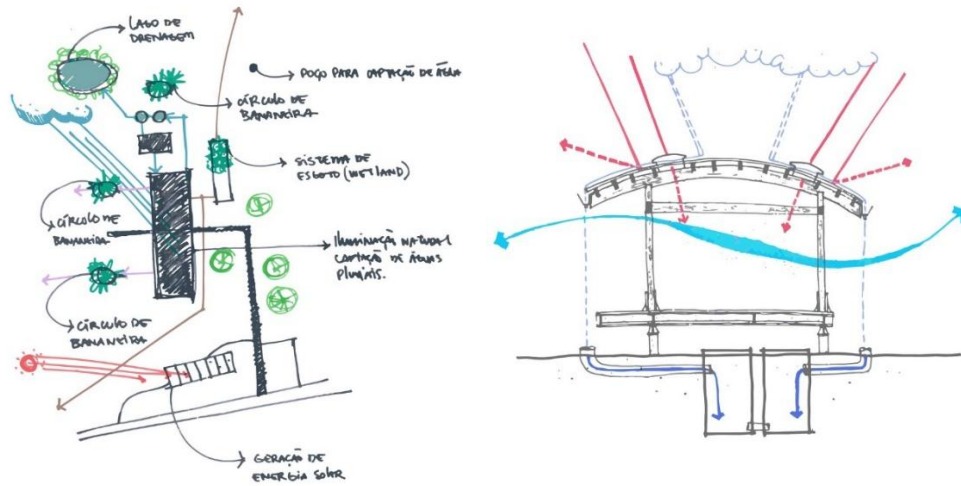 LAGO DE
DRENAGEM
POÇO PARA CAPTAÇÃO DE ÁGUA
CÍRCULO DE
BANANEIRA
SISTEMA DE
ESGOTO (WETLAND)
CÍRCULO DE
BANANEIRA
ILUMINAÇÃO NATURAL
CAPTAÇÃO DE ÁGUAS
PLUVIAIS.
CÍRCULO DE
BANANEIRA
GERAÇÃO DE
ENERGIA SOLAR